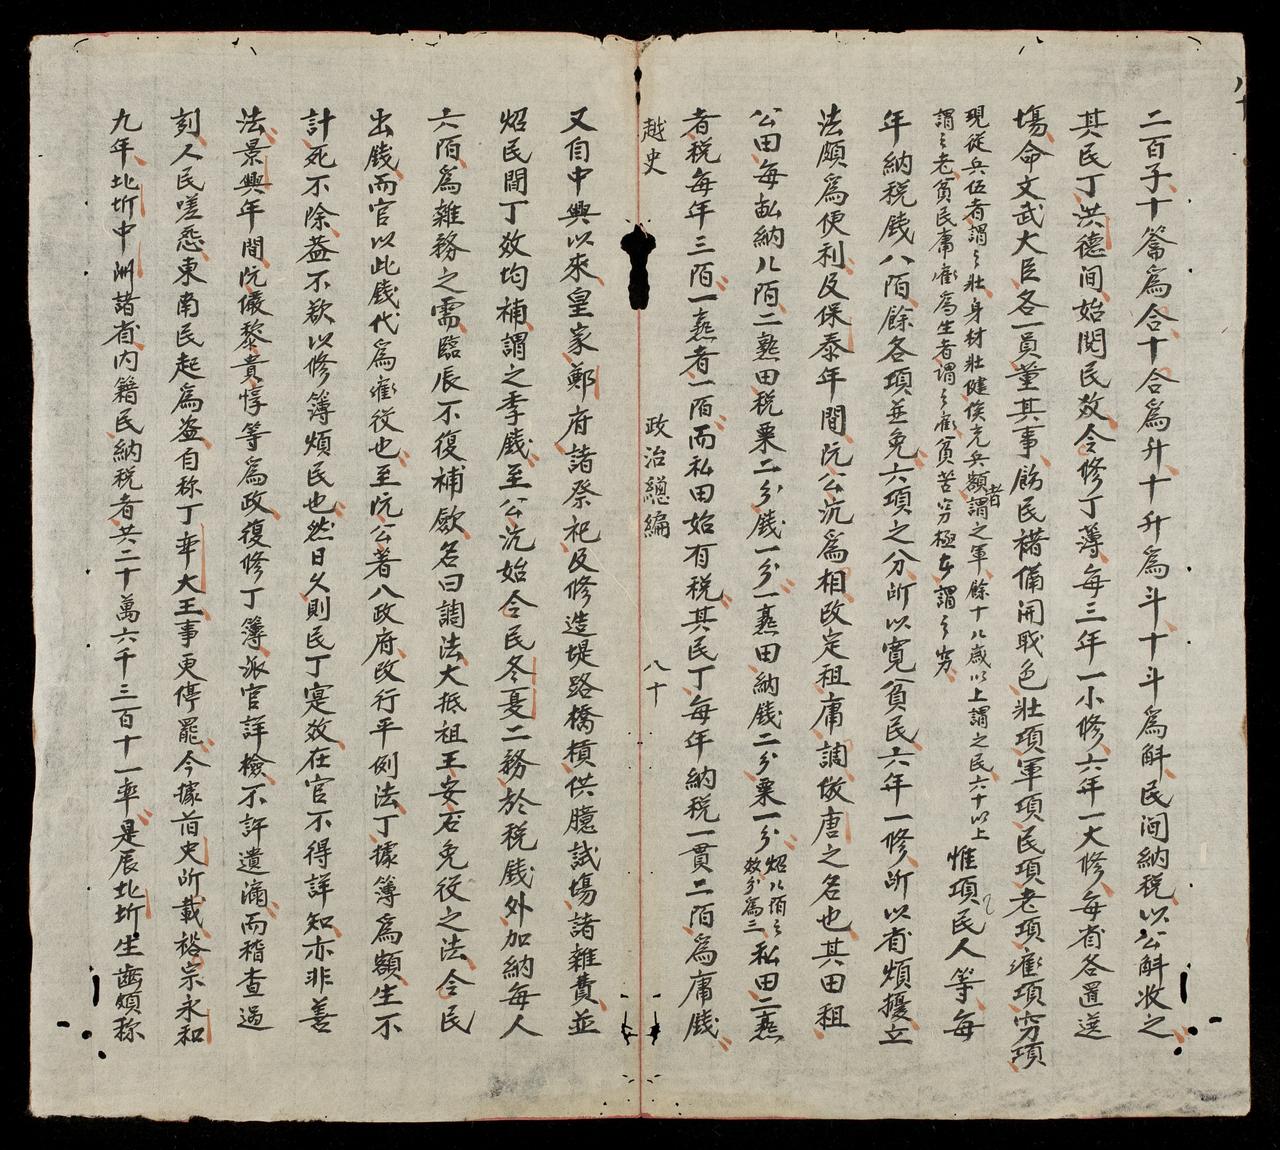 二百子十龠爲合十合爲升十升爲斗十斗爲斛民间納税以公斛收之
其民丁洪德间始閲民数令修丁薄每三年一小修六年一大修每省各置選
塲命文武大臣各一員董其事飭民褚備開耴色壮項軍項民項老項雇項窮項
現從兵伍者謂之壮身材壮健俟充兵額者謂之軍餘十八歳以上謂之民六十以上
謂之老貧民庸雇爲生者謂之雇貧苦窮極者謂之窮
惟項民人等每
年納税錢八陌餘各項並免六項之分所以寬貧民六年一修所以省煩擾立
法頗爲便利及保泰年間阮公沆爲相改定租庸調倣唐之名也其田租
公田每畝納八陌二熟田税粟二分錢一分一熟田納錢二分粟一分
炤八陌之
数分爲三
私田二熟
者税每年三陌一熟者一陌而私田始有税其民丁每年納税一貫二陌爲庸錢
越史 政治總編 八十
又自中興以來皇家鄭府諸祭祀及修造堤路橋樻供臆試塲諸雜費並
炤民間丁效均補謂之季錢至公沆始令民冬夏二務於税錢外加納每人
六陌爲雜務之需臨辰不復補歛名曰調法大抵祖王安石免役之法令民
出錢而官以此錢代爲雇役也至阮公著八政府改行平例法丁據簿爲額生不
計死不除益不欲以修簿煩民也然日久則民丁寔效在官不得詳知亦非善
法景興年間阮儼黎貴惇等爲政復修丁簿派官詳檢不許遺漏而稽查過
刻人民嗟怨東南民起爲盗自称丁率大王事更停罷今據旹史所載裕宗永和
九年北圻中洲諸省内籍民納税者共二十萬六千三百十一率是辰北圻生齒頗称